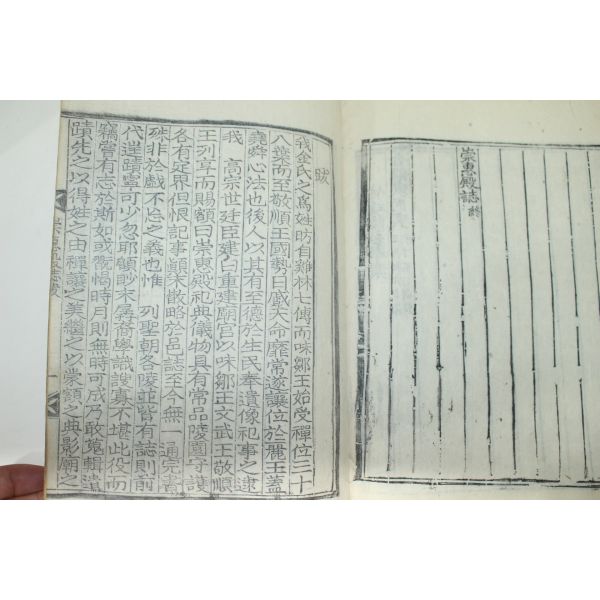 崇惠殿誌 終
跋
我金氏之爲姓昉自雞林七傳而味鄒王始受禪位三十
八葉而至敬順王國勢日蹙天命靡常遂讓位於麗王盖
堯舜心法也後人以其有至德於生民奉遺像祀事之逮
我 高宗世廷臣建白重建廟宮以味鄒王文武王敬順
王列享而賜額曰崇惠殿祀典儀物具有常品陵園守護
各有定界但恨記事顛末散略於邑誌至今無一通完書
殊非於戱不忘之義也惟 列聖朝各陵並皆有誌則前
代逸蹟寧可少忽耶顧眇末孱裔學識謏寡不堪此役而
竊嘗有志於斯如或玩愒時月則無時可成乃敢蒐輯遺
蹟先之以得姓之由禪讓之美繼之以崇額之典影廟之